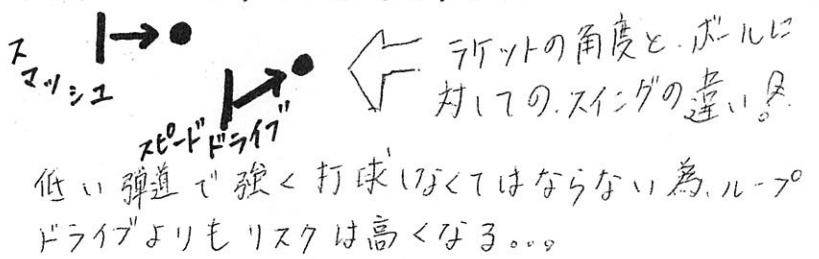 スマッシュ
スピードドライブ
ラケットの角度と、ボールに
対しての、スイングの違い!!
低い弾道で強く打球しなくてはならない為、ループ
ドライブよりもリスクは高くなる。。。